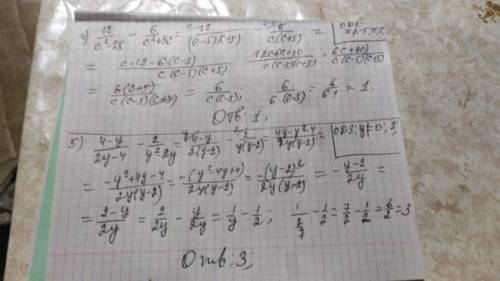 а) \frac{12}{c^2-25} - \frac{6}{c^2+5c} = \frac{12}{(c-5)(c+5)} - \frac{6}{c(c+5)} =
= \frac{c·12-6(c-5)}{c(c-5)(c+5)} = \frac{6c+30}{c(c-5)(c+5)}
= \frac{6(c+5)}{c(c-5)(c+5)} = \frac{6}{c(c-5)}; \frac{6}{6·(6-5)} = \frac{6}{6·1} = 1.
Отв. 1;
б) \frac{4-y}{2y-4} - \frac{2}{y^2-2y} = \frac{4-y}{2(y-2)} - \frac{2}{y(y-2)} = \frac{4y-y^2-4}{2y(y-2)} = ОДЗ: y≠0; 2
= \frac{-y^2+4y-4}{2y(y-2)} = \frac{-(y^2-4y+4)}{2y(y-2)} = \frac{-(y-2)^2}{2y(y-2)} = -\frac{y-2}{2y} =
= \frac{2-y}{2y} = \frac{2}{2y} - \frac{y}{2y} = \frac{1}{y} - \frac{1}{2}; \frac{1}{\frac{2}{7}} - \frac{1}{2} = \frac{7}{2} - \frac{1}{2} = \frac{6}{2} = 3
Отв. 3;